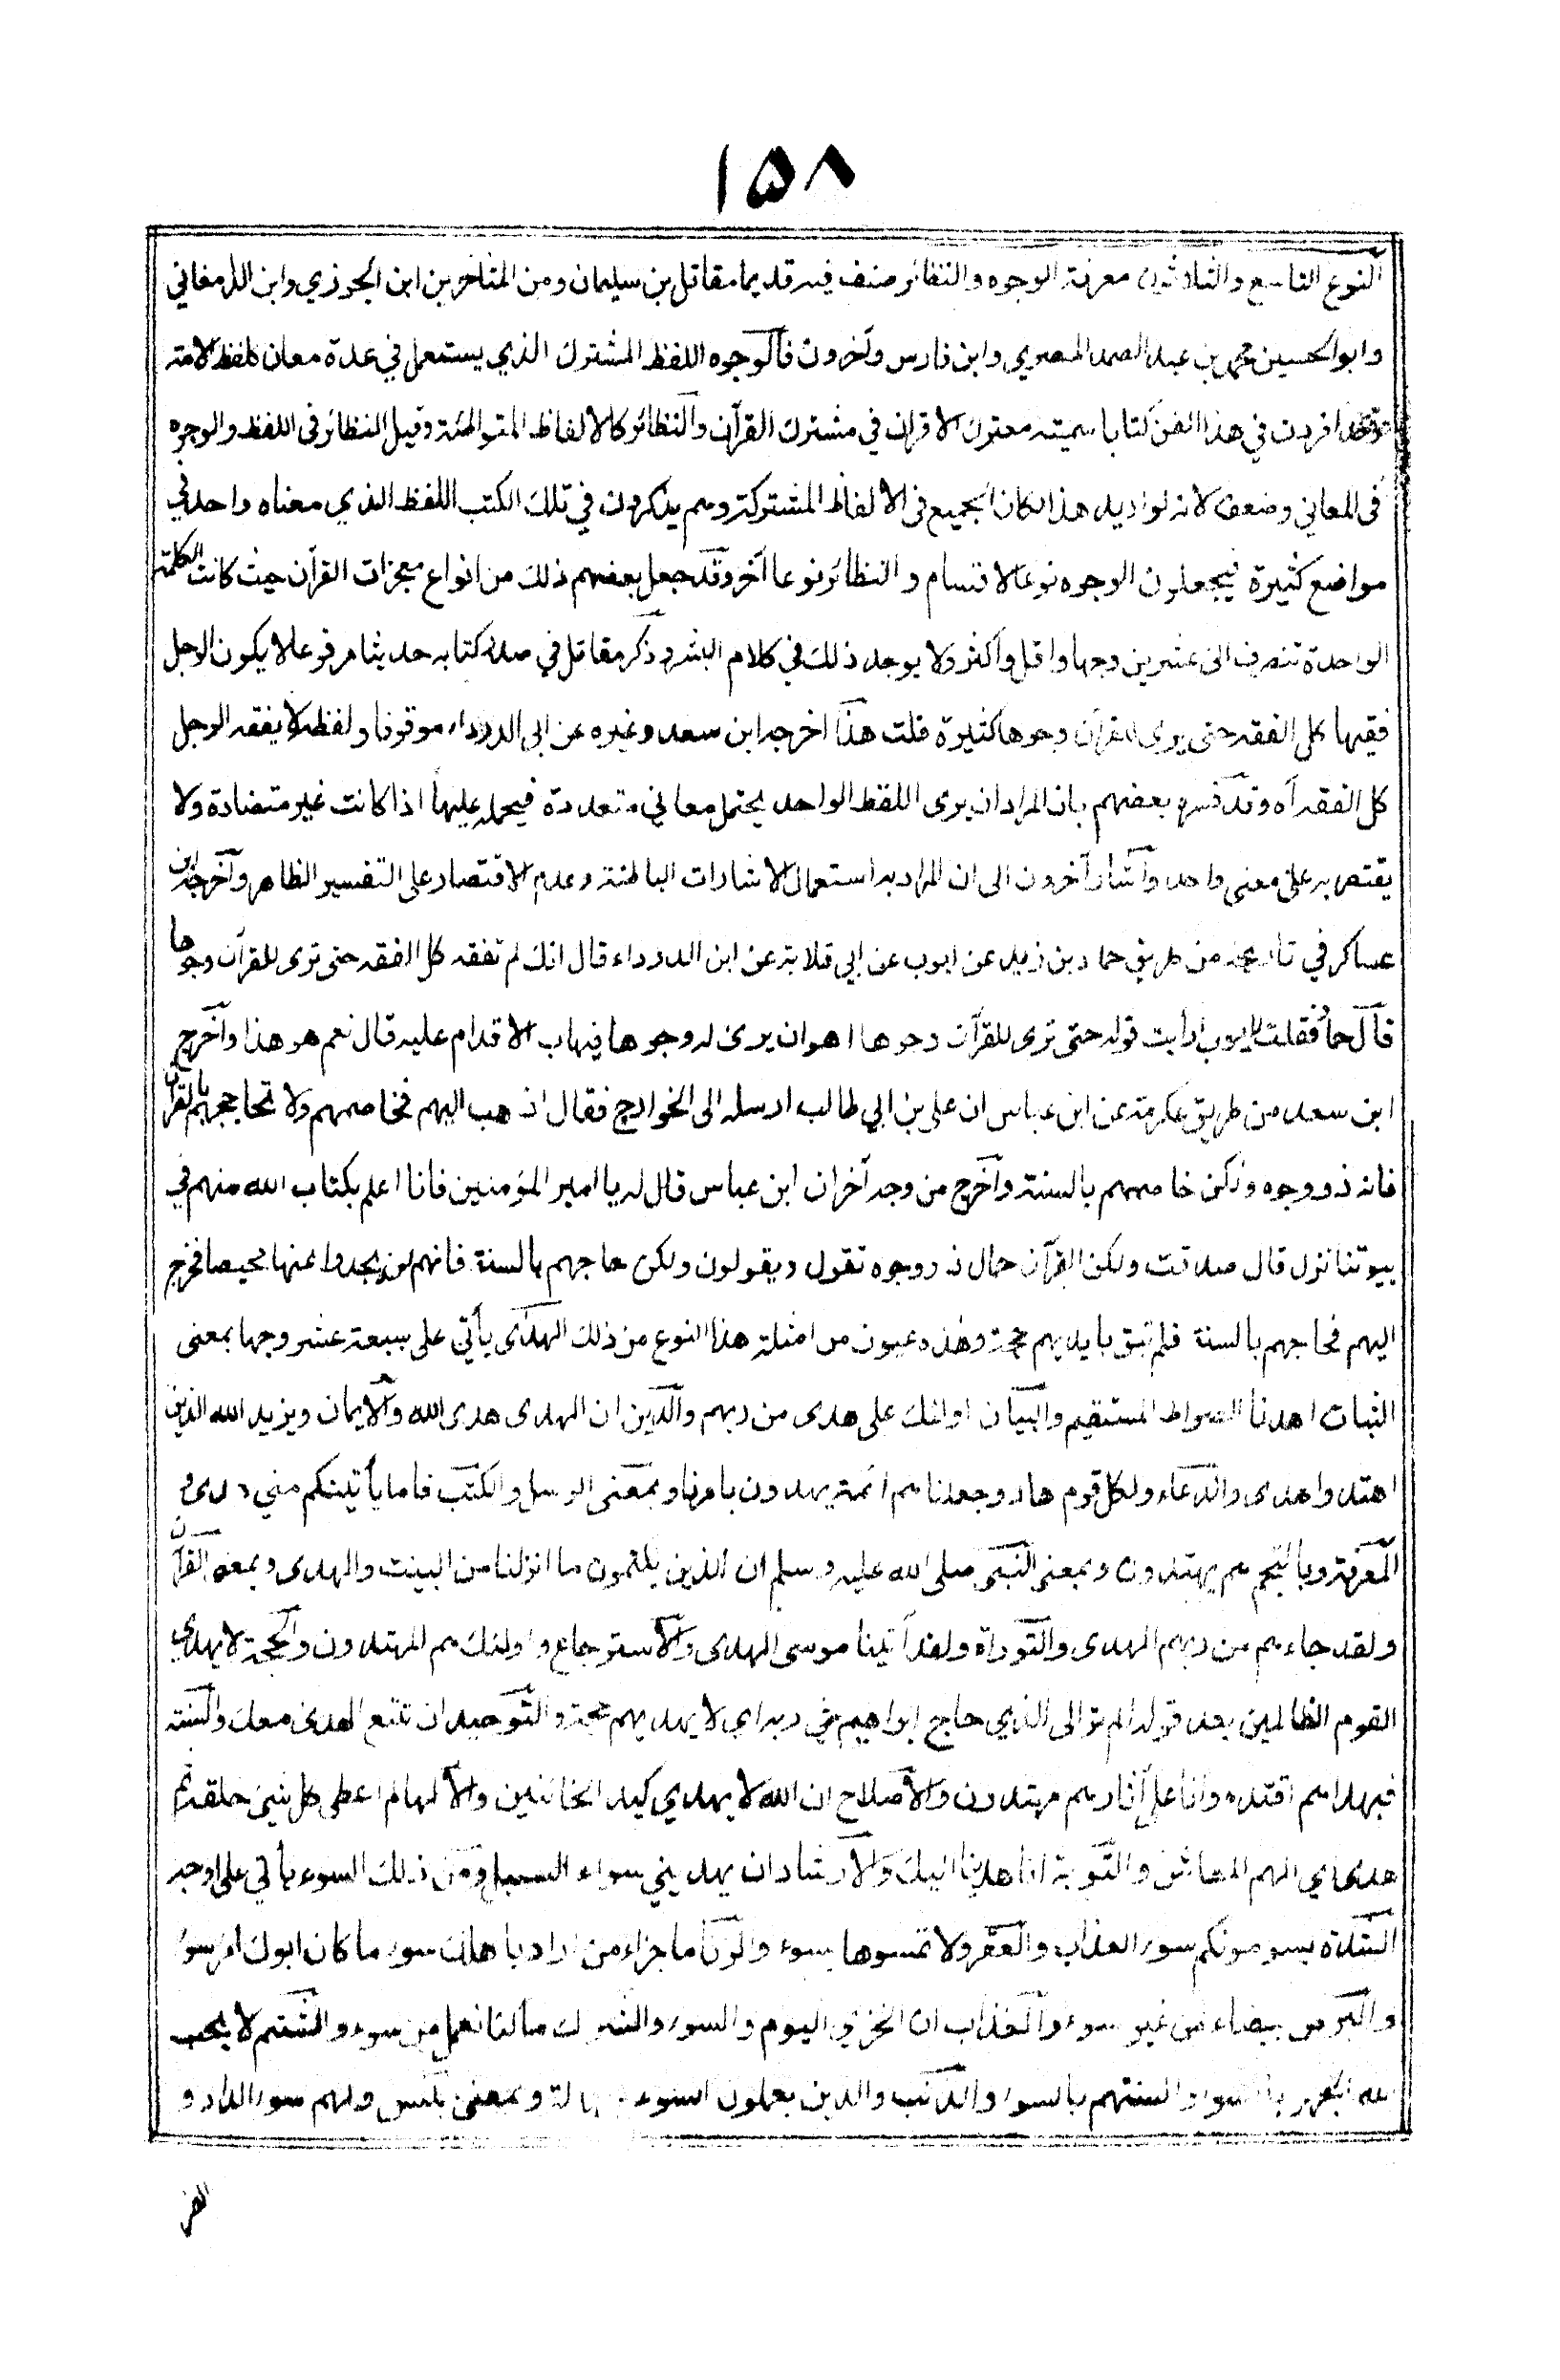 ١٥٨
النوع التاسع والثلاثون معرفة الوجوه والنظائر صنف فيه قديما مقاتل بن سليمان ومن المتاخرين ابن الجوزي وابن الدامغاني
وابو الحسين محمد بن عبد الصمد المصري وابن فارس وآخرون فالوجوه اللفظ المشترك الذي يستعمل في عدة معان كلفظ الامة
وقد افردت في هذا الفن كتابا سميته معترك الاقران في مشترك القرآن والنظائر كالالفاظ المتواطئة وقيل النظائر في اللفظ والوجوه
في المعاني وضعف لانه لو اريد هذا لكان الجميع في الالفاظ المشتركة وهم يذكرون في تلك الكتب اللفظ الذي معناه واحد في
مواضع كثيرة فيجعلون الوجوه نوعا لاقسام والنظائر نوعا آخر وقد جعل بعضهم ذلك من انواع معجزات القرآن حيث كانت الكلمة
الواحدة تنصرف الى عشرين وجها واقل وأكثر ولا يوجد ذلك في كلام البشر وذكر مقاتل في صدر كتابه حديثا مرفوعا لا يكون الرجل
فقيها كل الفقه حتى يرى للقرآن وجوها كثيرة قلت هذا اخرجه ابن سعد وغيره عن ابي الدرداء موقوفا ولفظه لا يفقه الرجل
كل الفقه آه وقد فسره بعضهم بان المراد ان يرى اللفظ الواحد يحتمل معاني متعددة فيحمله عليها اذا كانت غير متضادة ولا
يقتصر به على معنى واحد وأشار آخرون الى ان المراد به استعمال الاشارات الباطنة وعدم الاقتصار على التفسير الظاهر وآخرجه ابن
عساكر في تاريخه من طريق حماد بن زيد عن ايوب عن ابي قلابة عن ابن الدرداء قال انك لم تفقه كل الفقه حتى ترى للقرآن وجوها
قال حماد فقلت لايوب ارأيت قوله حتى ترى للقرآن وجوها اهو ان يرى له وجوها فيهاب الاقدام عليه قال نعم هو هذا وآخرج
ابن سعد من طريق عكرمة عن ابن عباس ان علي بن ابي طالب ارسله الى الخوارج فقال اذهب اليهم فخاصمهم ولا تحاججهم بالقرآن
فانه ذو وجوه ولكن خاصمهم بالسنة وآخرج من وجه آخر ان ابن عباس قال له يا امير المؤمنين فانا اعلم بكتاب الله منهم في
بيوتنا نزل قال صدقت ولكن القرآن حمال ذو وجوه تقول ويقولون ولكن حاجهم بالسنة فانهم لن يجدوا عنها محيصا فخرج
اليهم فحاجهم بالسنة فلم تبق بايديهم حجة وهذه عيون من امثلة هذا النوع من ذلك الهدى يأتي على سبعة عشر وجها بمعنى
الثبات اهدنا الصراط المستقيم والبيان اولئك على هدى من ربهم والدين ان الهدى هدى الله والايمان ويزيد الله الذين
اهتدوا هدى والدعاء ولكل قوم هاد وجعلنا هم ائمة يهدون بامرنا وبمعنى الرسل والكتب فاما يأتينكم مني هدى و
المعرفة وبالنجم هم يهتدون وبمعنى النبي صلى الله عليه وسلم ان الذين يكتمون ما انزلنا من البينت والهدى وبمعنى القرآن
ولقد جاءهم من ربهم الهدى والتوراة ولقد آتينا موسى الهدى والاسترجاع واولئك هم المهتدون والحجة لا يهدي
القوم الظالمين بعد قوله الم تر الى الذي حاج ابراهيم في ربه اي لا يهديهم حجة والتوحيد ان نتبع الهدى معك والسنة
فبهداهم اقتده وانا على آثارهم مهتدون والاصلاح ان الله لا يهدي كيد الخائنين والالهام اعطى كل شيئ خلقه ثم
هدى اي الهم المعاش والتوبة انا هدنا اليك والارشاد ان يهديني سواء السبيل ومن ذلك السوء يأتي على اوجه
الشدة يسومونكم سوء العذاب والعقر ولا تمسوها بسوء والزنا ما جزاء من اراد باهلك سوء ما كان ابوك امرء سوء
والبرص بيضاء من غير سوء والعذاب ان الخزي اليوم والسوء والشرك ما كنا نعمل من سوء والشتم لا يحب
الله الجهر بالسوء والسنتهم بالسوء والذنب والذين يعملون السوء بجهالة وبمعنى بئس ولهم سوء الدار و
الضر